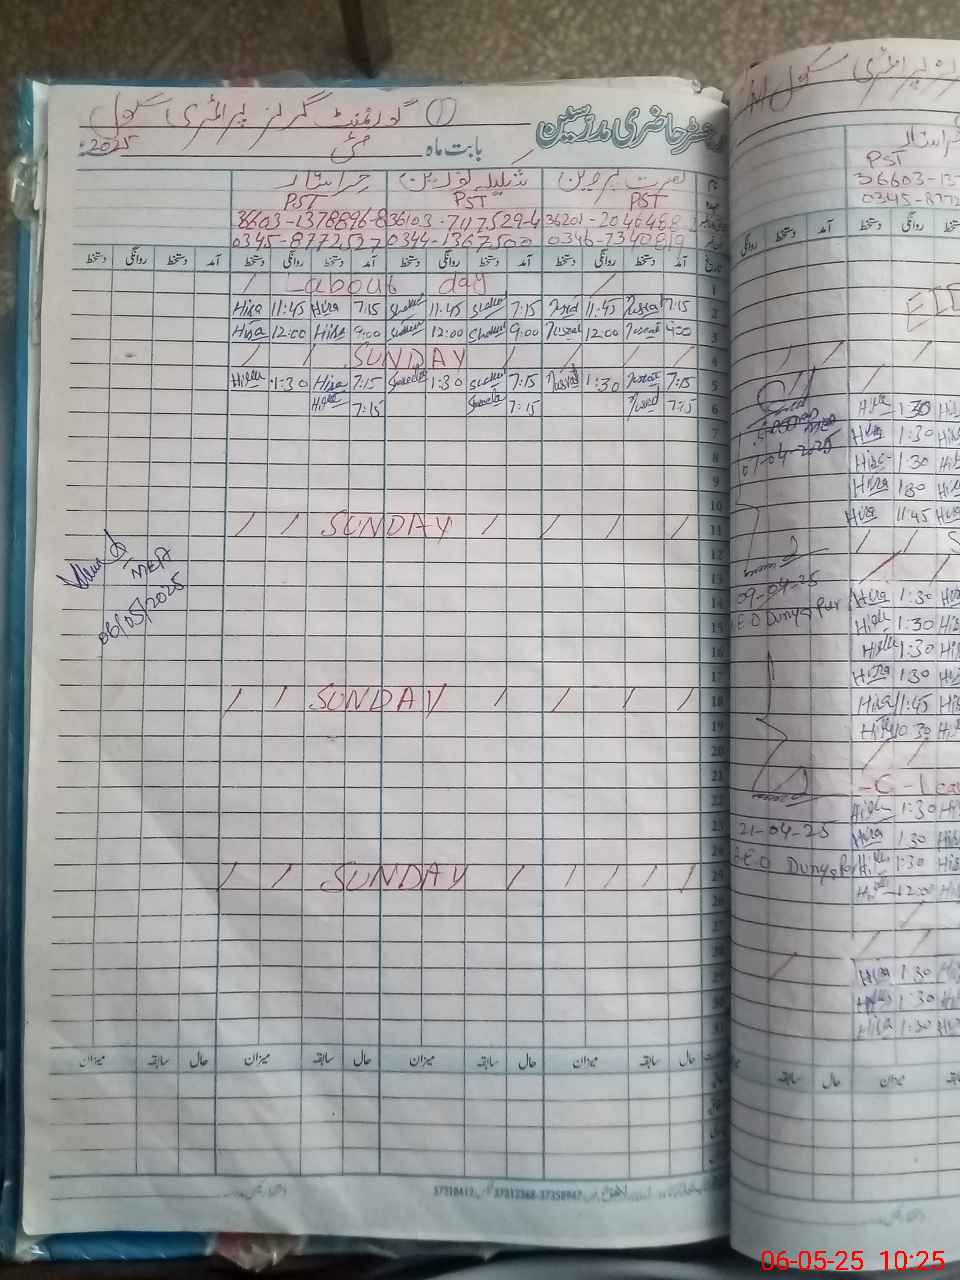 گورنمنٹ گرلز پرائمری سکول ①
رجسٹر حاضری مدرسین
بابت ماہ مئی 2025
نصرت پروین شکیلہ نورین حرا ستار
PST PST PST
36201-2046488 36103-7117529-4 36603-1378896-8
0346-7340819 0344-1367500 0345-8772537
آمد دستخط روانگی دستخط آمد دستخط روانگی دستخط آمد دستخط روانگی دستخط آمد دستخط روانگی دستخط
1 about day
Hira 11:45 Hira 7:15 11:45 7:15 Nusrat 11:45 Nusrat 7:15 2
Hira 12:00 Hira 9:00 12:00 9:00 Nusrat 12:00 Nusrat 9:00 3
/ / SUNDAY / / / / 4
Hira 1:30 Hira 7:15 1:30 7:15 Nusrat 1:30 Nusrat 7:15 5
Hira 7:15 7:15 Nusrat 7:15 6
7
8
9
10
/ / SUNDAY / / / / 11
12
13
14
15
16
17
/ / SUNDAY / / / / 18
19
20
21
22
23
24
/ / SUNDAY / / / / / 25
26
27
28
29
30
31
MEA
06/05/2025
حال سابقہ میزان حال سابقہ میزان حال سابقہ میزان حال سابقہ میزان
37310412 37312368-37358947
پرائمری سکول
PST
36603-13
0345-8772
آمد دستخط روانگی
Hira 1:30
MEA
07-04-2025
Hira 1:30
Hira 1:30
Hira 1:30
Hira 11:45
09-04-25
A.E.O Dunyapur
Hira 1:30
Hira 1:30
Hira 1:30
Hira 1:30
Hira 11:45
Hira 10:30
Hira 1:30
21-04-25
A.E.O Dunyapur
Hira 1:30
Hira 1:30
Hira 12:00
Hira 1:30
Hira 1:30
Hira 1:30
حال سابقہ میزان
06-05-25 10:25